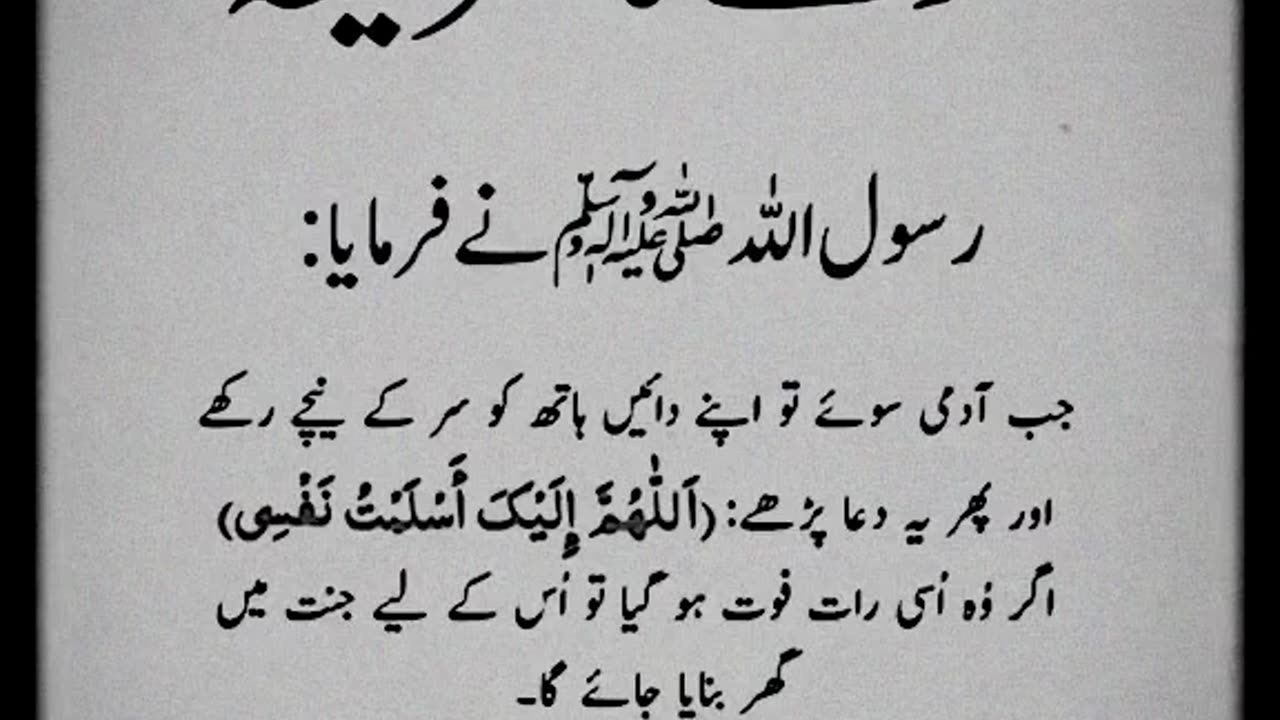 رسول اللہ ﷺ نے فرمایا:
جب آدمی سوئے تو اپنے دائیں ہاتھ کو سر کے نیچے رکھے
اور پھر یہ دعا پڑھے: (اَللّٰهُمَّ إِلَيْکَ أَسْلَمْتُ نَفْسِی)
اگر وُہ اُسی رات فوت ہو گیا تو اُس کے لیے جنت میں
گھر بنایا جائے گا۔